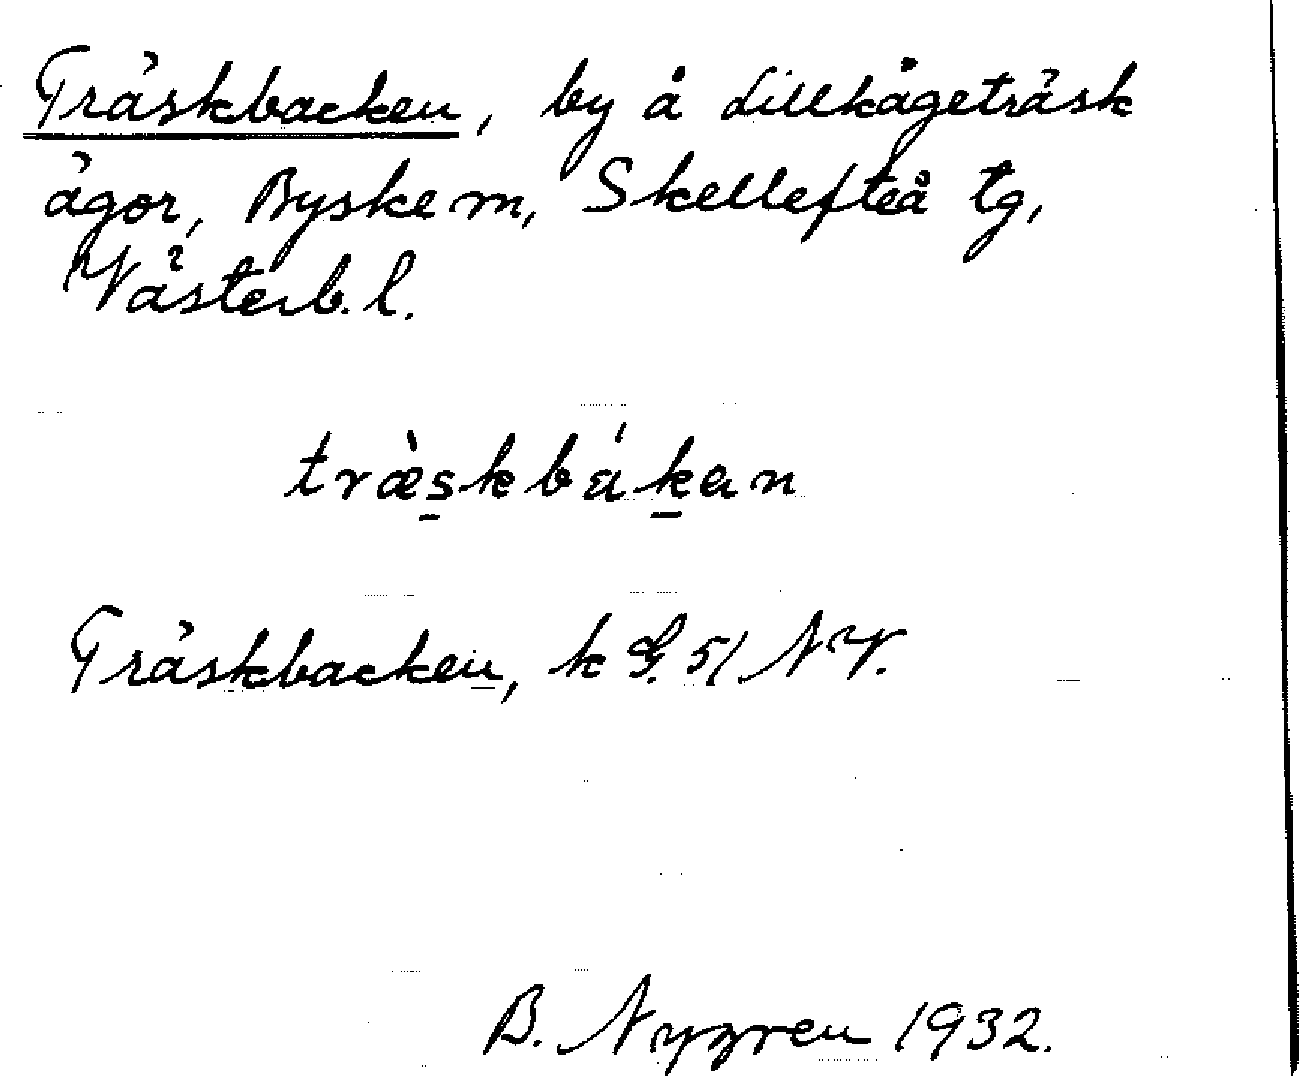 Träskbacken, by å Lillkågeträsk
ägor, Byske sn, Skellefteå tg,
Västerb. l.
træ̀skbákan
Träskbacken, k G. 51 NV.
B. Nygren 1932.